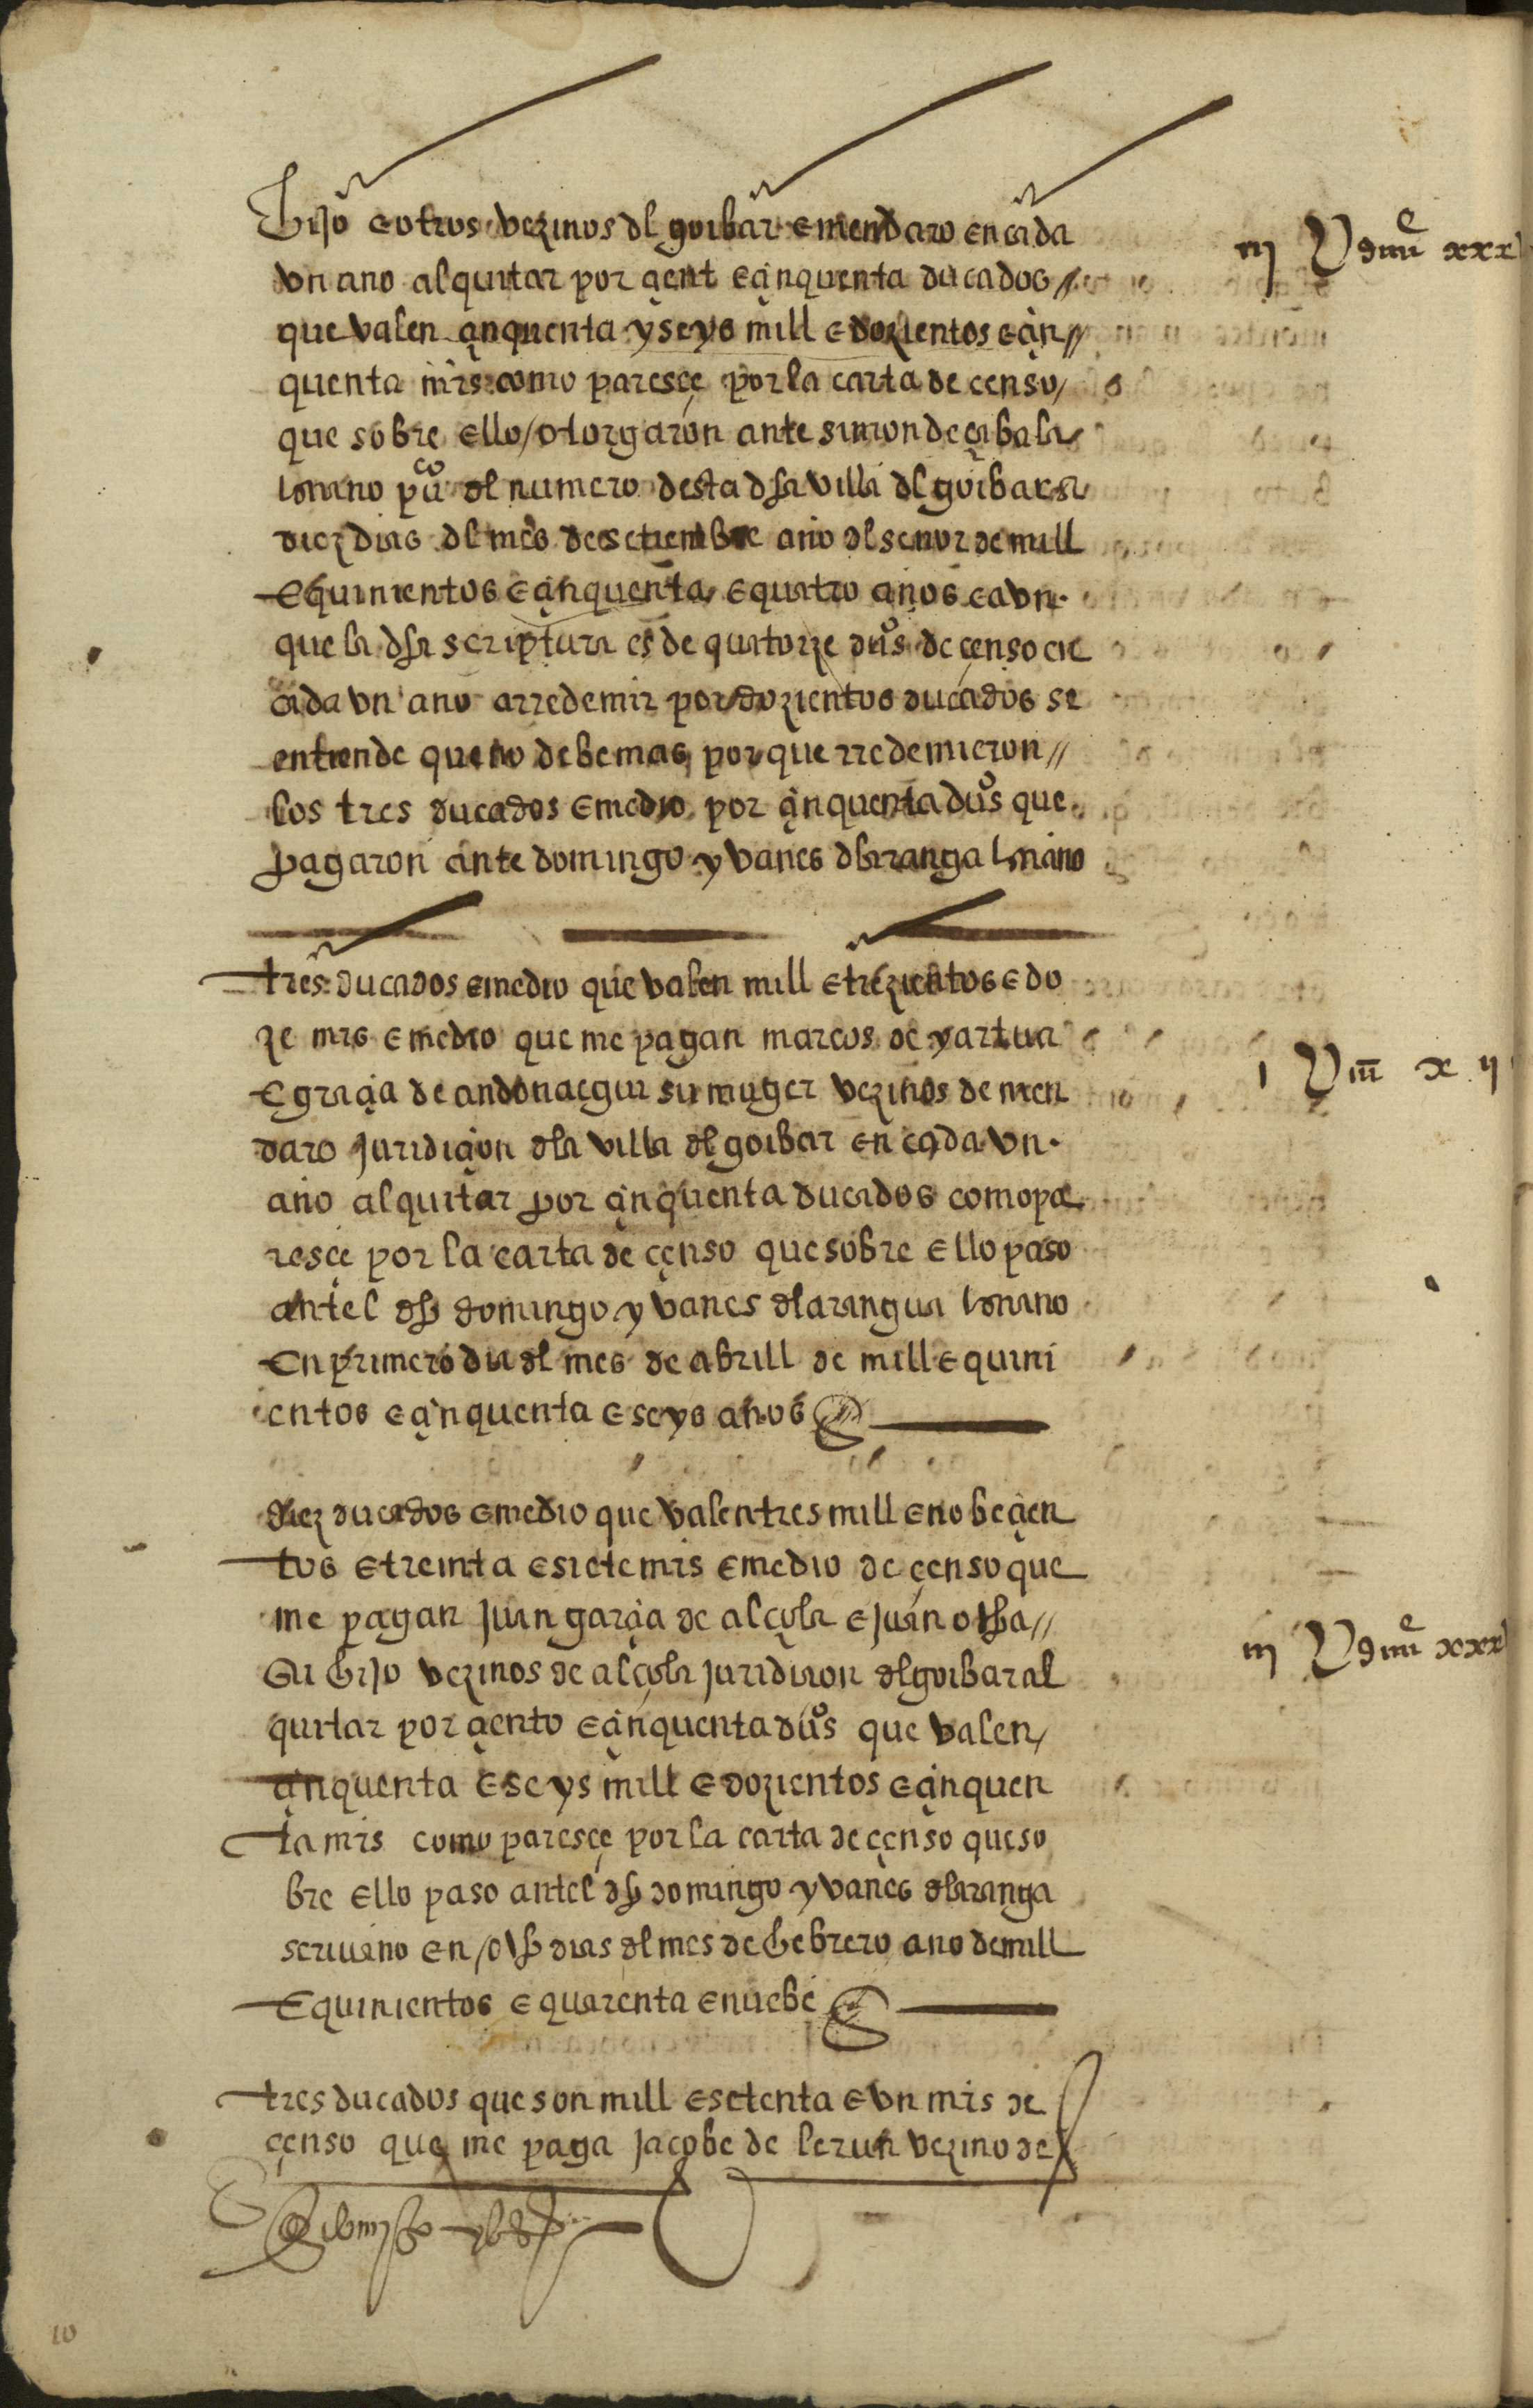 hijo e otros vezinos dl goibar e mendaro en cada
vn año al quitar por çient e çinquenta ducados //
que valen çinquenta y seys mill e dozientos e çin//
quenta mrs como paresçe por la carta de censo /
que sobre ello / otorgaron ante simon de çabala
srivano puco del numero desta dha villa dl goibar a
diez dias dl mes de setienbre año del señor de mill
e quinientos e çinquenta e quatro años e avn
que la dha scriptura es de quatorze dus de çenso en
cada vn año a rredemir por dozientos ducados se
entiende que no debe mas porque rredemieron //
los tres ducados e medio por çinquenta dus que
pagaron ante domingo yvanes dlaranga srivano
tres ducados e medio que valen mill e trezientos e do
ze mrs e medio que me pagan marcos de yartua
e graçia de andonaegui su muger vezinos de men
daro juridiçion dla villa dl goibar en cada vn
año al quitar por çinquenta ducados como pa
resçe por la carta de çenso que sobre ello paso
antel dho domingo yvanes dlarangua srivano
en primero dia dl mes de abrill de mill e quini
entos e çinquenta e seys años
diez ducados e medio que valen tres mill e nobeçien
tos e treinta e siete mrs e medio de çenso que
me pagan juan garçia de alçola e juan ochoa //
su hijo vezinos de alçola juridicion dlgoibar al
quitar por çiento e çinquenta dus que valen /
çinquenta e seys mill e dozientos e çinquen
ta mrs como paresçe por la carta de çenso que so
bre ello paso antel dho domingo yvanes dlaranga
scrivano en ocho dias dl mes de hebrero año de mill
e quinientos e quarenta e nuebe
tres ducados que son mill e setenta e vn mrs de
çenso que me paga jacobe de lerun vezino de
iij U 9iiiiº xxx
i U iii x ii
iij U 9iiiiº xxx
10